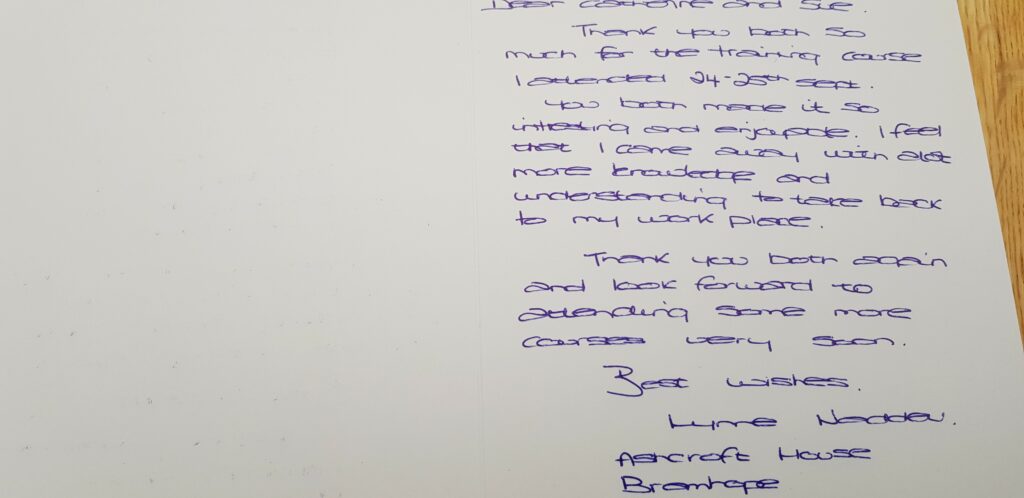 Dear Catherine and Sue.
Thank you both so
much for the training course
I attended 24-25th sept.
You both made it so
intresting and enjoyable. I feel
that I came away with alot
more knowledge and
understanding to take back
to my work place.
Thank you both again
and look forward to
attending some more
courses very soon.
Best wishes.
Lynne
Ashcroft House
Bramhope